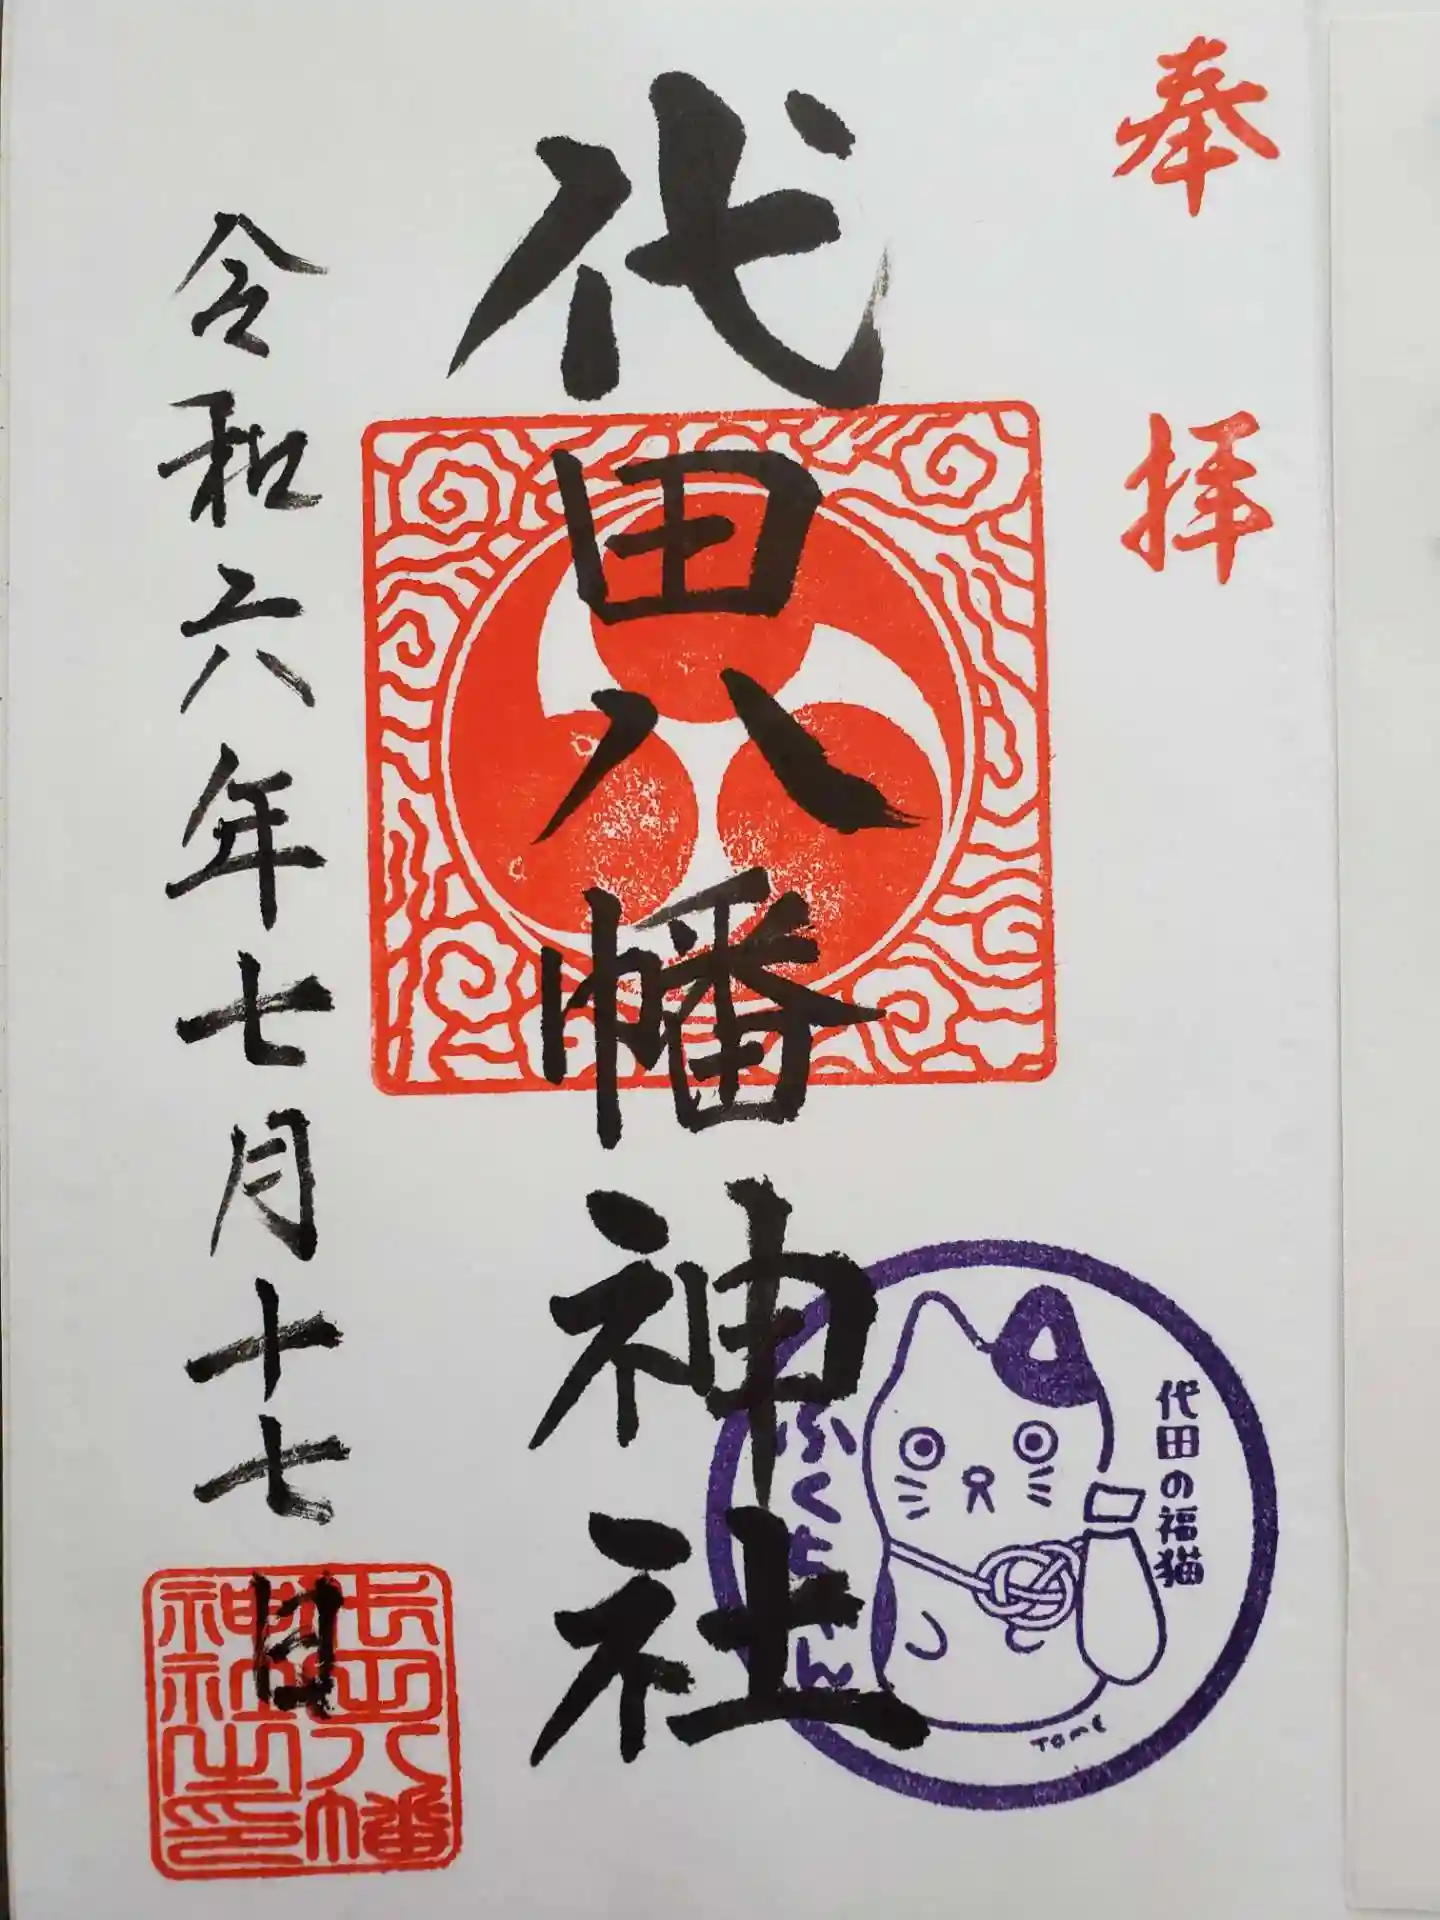 奉拝
代田八幡神社
代田の福猫
ふくちゃん
TOME
令和六年七月十七日
代田八幡
神社之印